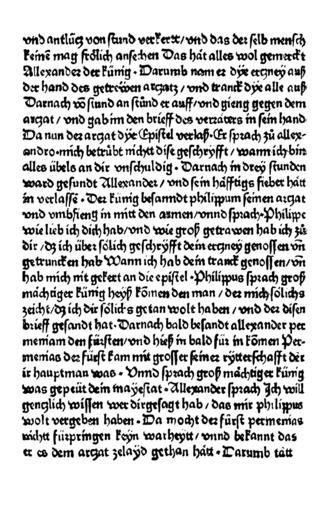 vnd antlücz von stund verkert/vnd das der selb mensch
keinē mag frölich ansehen Das hat alles wol gemerckt
Allexander der künig · Darumb nam er dye erczney auß
der hand des getrewen arczatz / vnd tranck dye alle auß
Darnach vō stund an stūnd er auff/vnd gieng gegen dem
arczat / vnd gab im den brieff des verräters in sein hand
Da nun der arczat dye Epistel verlaß · Er sprach zů allex-
andro · mich betrübt nichtt dise geschryfft / wann ich bin
alles übels an dir vnschuldig · Darnach in drey stunden
ward gesundt Allexander / vnd sein häfftigs fieber hätt
in verlassē · Der künig besamdt philippum seinen arczat
vnd vmbfieng in mitt den armen/vnnd sprach · Philippe
wie lieb ich dich hab/vnd wie groß getrawen hab ich zů
dir /dz ich über sölich geschryfft dein erczney genossen vñ
getruncken hab Wann ich hab dein tranck genossen /vñ
hab mich nit gekert an die epistel · Philippus sprach groß
mächtiger künig heyß kōmen den man / der mich sölichs
zeicht/dz ich dir sölichs getan wolt haben / vnd der disen
brieff gesandt hat · Darnach bald besandt allexander per
meniam den fürsten/vnd hieß in bald für in komen Per-
menias der fürst kam mit grosser seiner rytterschafft der
ir hauptman was · Vnnd sprach groß mächtiger künig
was gepeüt dein mayestat · Allexander sprach Ich will
genczlich wissen wer dir gesagt hab / das mir philippus
wolt vergeben haben · Da mocht der fürst permenias
nichtt fürpringen keyn warheytt/vnnd bekannt das
er es dem arczat zelayd gethan hätt · Darumb tätt